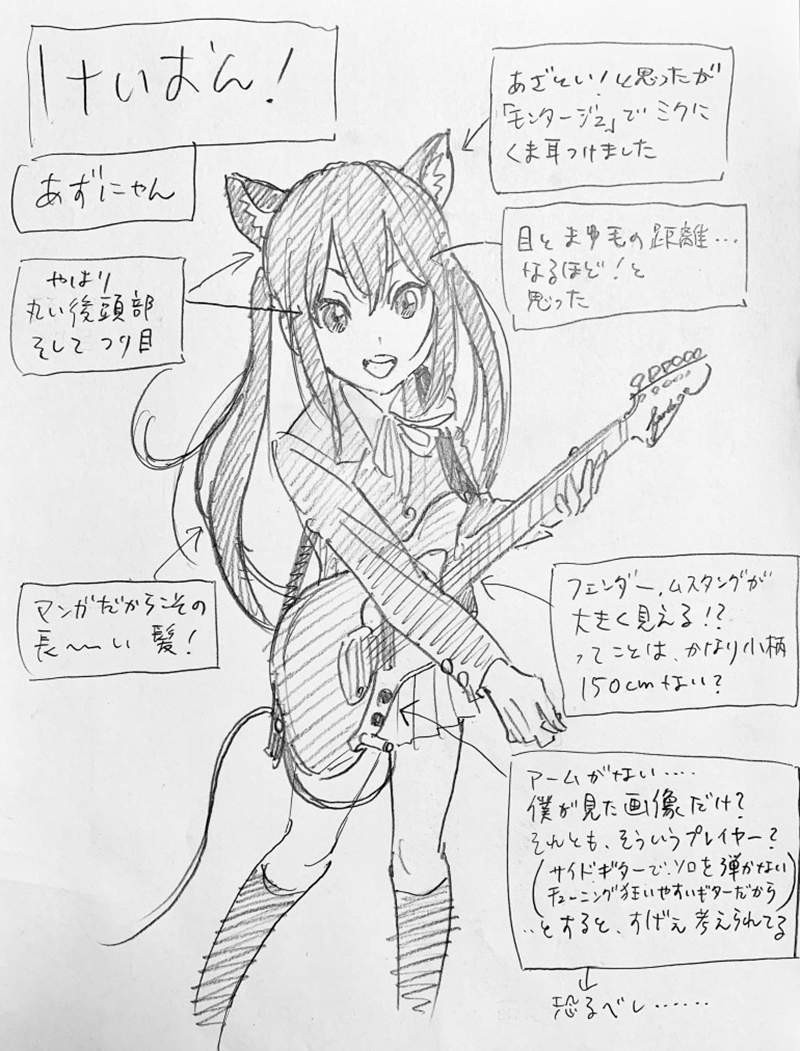 けいおん!
あずにゃん
あざとい!と思ったが
「モンタージュ」でミクに
くま耳つけました
目とまゆ毛の距離…
なるほど!と
思った
やはり
丸い後頭部
そしてつり目
マンガだからこその
長〜〜い髪!
フェンダー.ムスタングが
大きく見える!?
ってことは、かなり小柄
150cmない?
アームがない….
僕が見た画像だけ?
それとも、そういうプレイヤー?
(サイドギターで、ソロを弾かない
チューニング狂いやすいギターだから)
..とすると、すげぇ考えられてる
恐るべし……